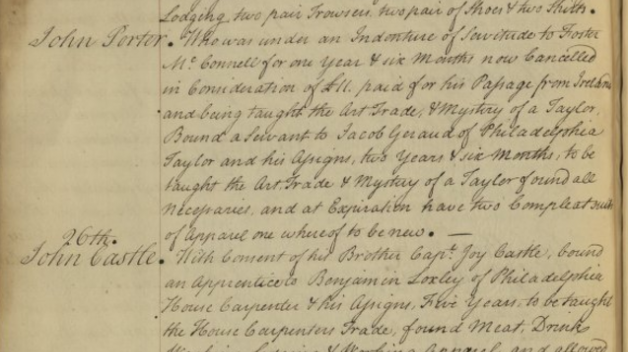 Lodging, two pair Trowsers, two pair of Shoes & two Shirts.
John Porter. Who was under an Indenture of Servitude to Foster
Mc. Connell for one Year & six Months now Cancelled
in Consideration of £11. paid for his Passage from Ireland
and being taught the Art Trade, & Mystery of a Taylor,
Bound a Servant to Jacob Geraud of Philadelphia
Taylor and his Assigns, two Years & six Months, to be
taught the Art, Trade & Mystery of a Taylor found all
Necessaries, and at Expiration have two Compleat suits
of Apparel one whereof to be new. —
26th.
John Castle. With Consent of his Brother Capt. Joy Castle, bound
an Apprentice to Benjamin Loxley of Philadelphia
House Carpenter & his Assigns, Five Years, to be taught
the House Carpenters Trade, found Meat, Drink
Washing Lodging & Working Apparel and allowed